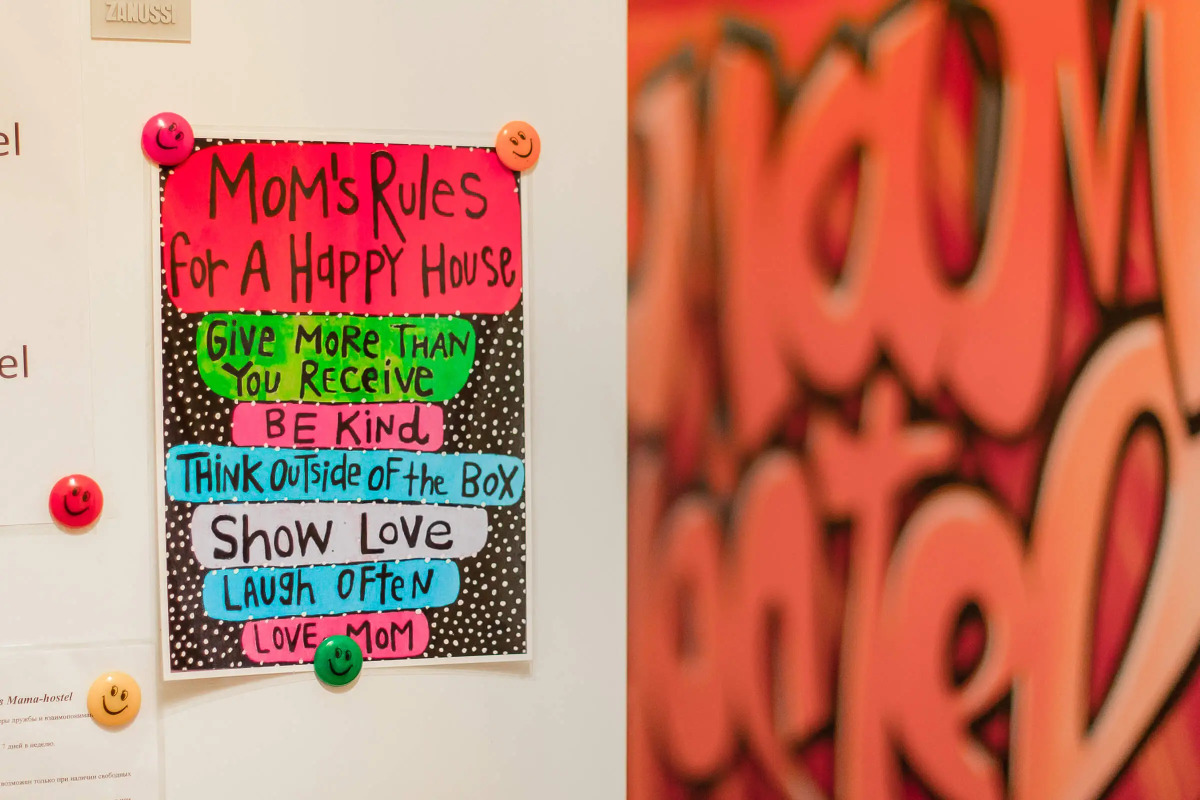 ZANUSSI
el
MOM's RULES
for A HAPPY HOUSE
GIVE MORE THAN
YOU RECEIVE
BE KINd
THINK OUTSIDE OF the BOX
Show Love
LAUGH OFTEN
LOVE MOM
el
Mama-hostel
дружбы и взаимопонимания
7 дней в неделю
возможно только при наличии свободных